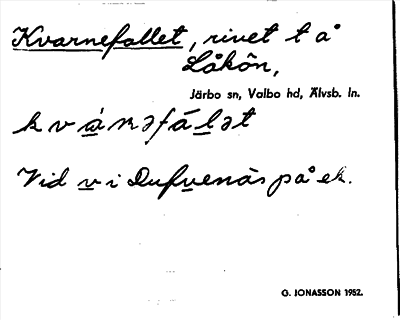 Kvarnefallet, rivet t å
Låkön,
Järbo sn, Valbo hd, Älvsb. ln.
kvánəfálət
Vid v i Dufvenäs på ek.
G. JONASSON 1952.